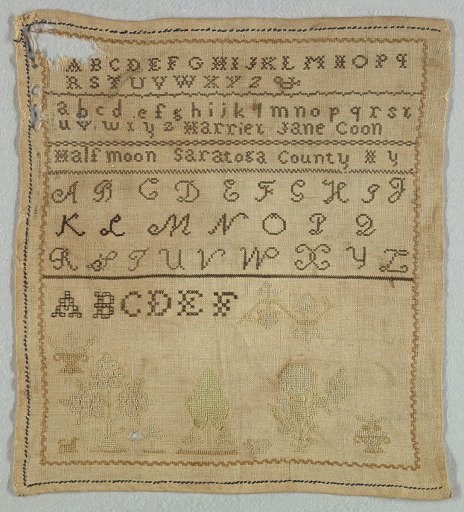 A B C D E F G H I J K L M N O P Q
R S T U V W X Y Z
a b c d e f g h i j k l m n o p q r s t
u v w x y z Harriet Jane Coon
Halfmoon Saratoga County N y
A B C D E F G H I J
K L M N O P Q
R S T U V W X Y Z
A B C D E F